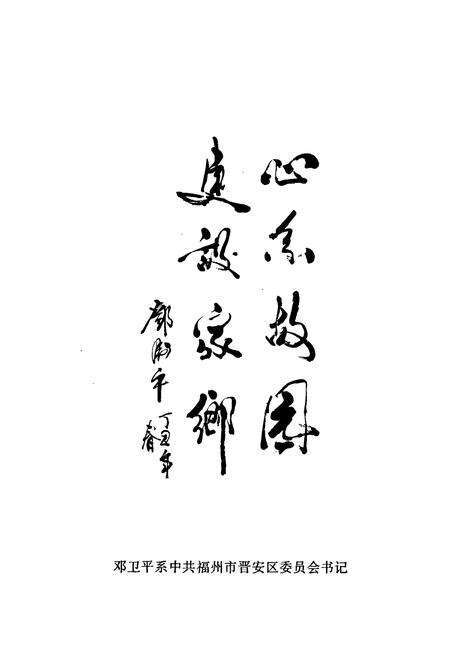 心系故园
建设家乡
邓卫平
丁丑年
春
邓卫平系中共福州市晋安区委员会书记